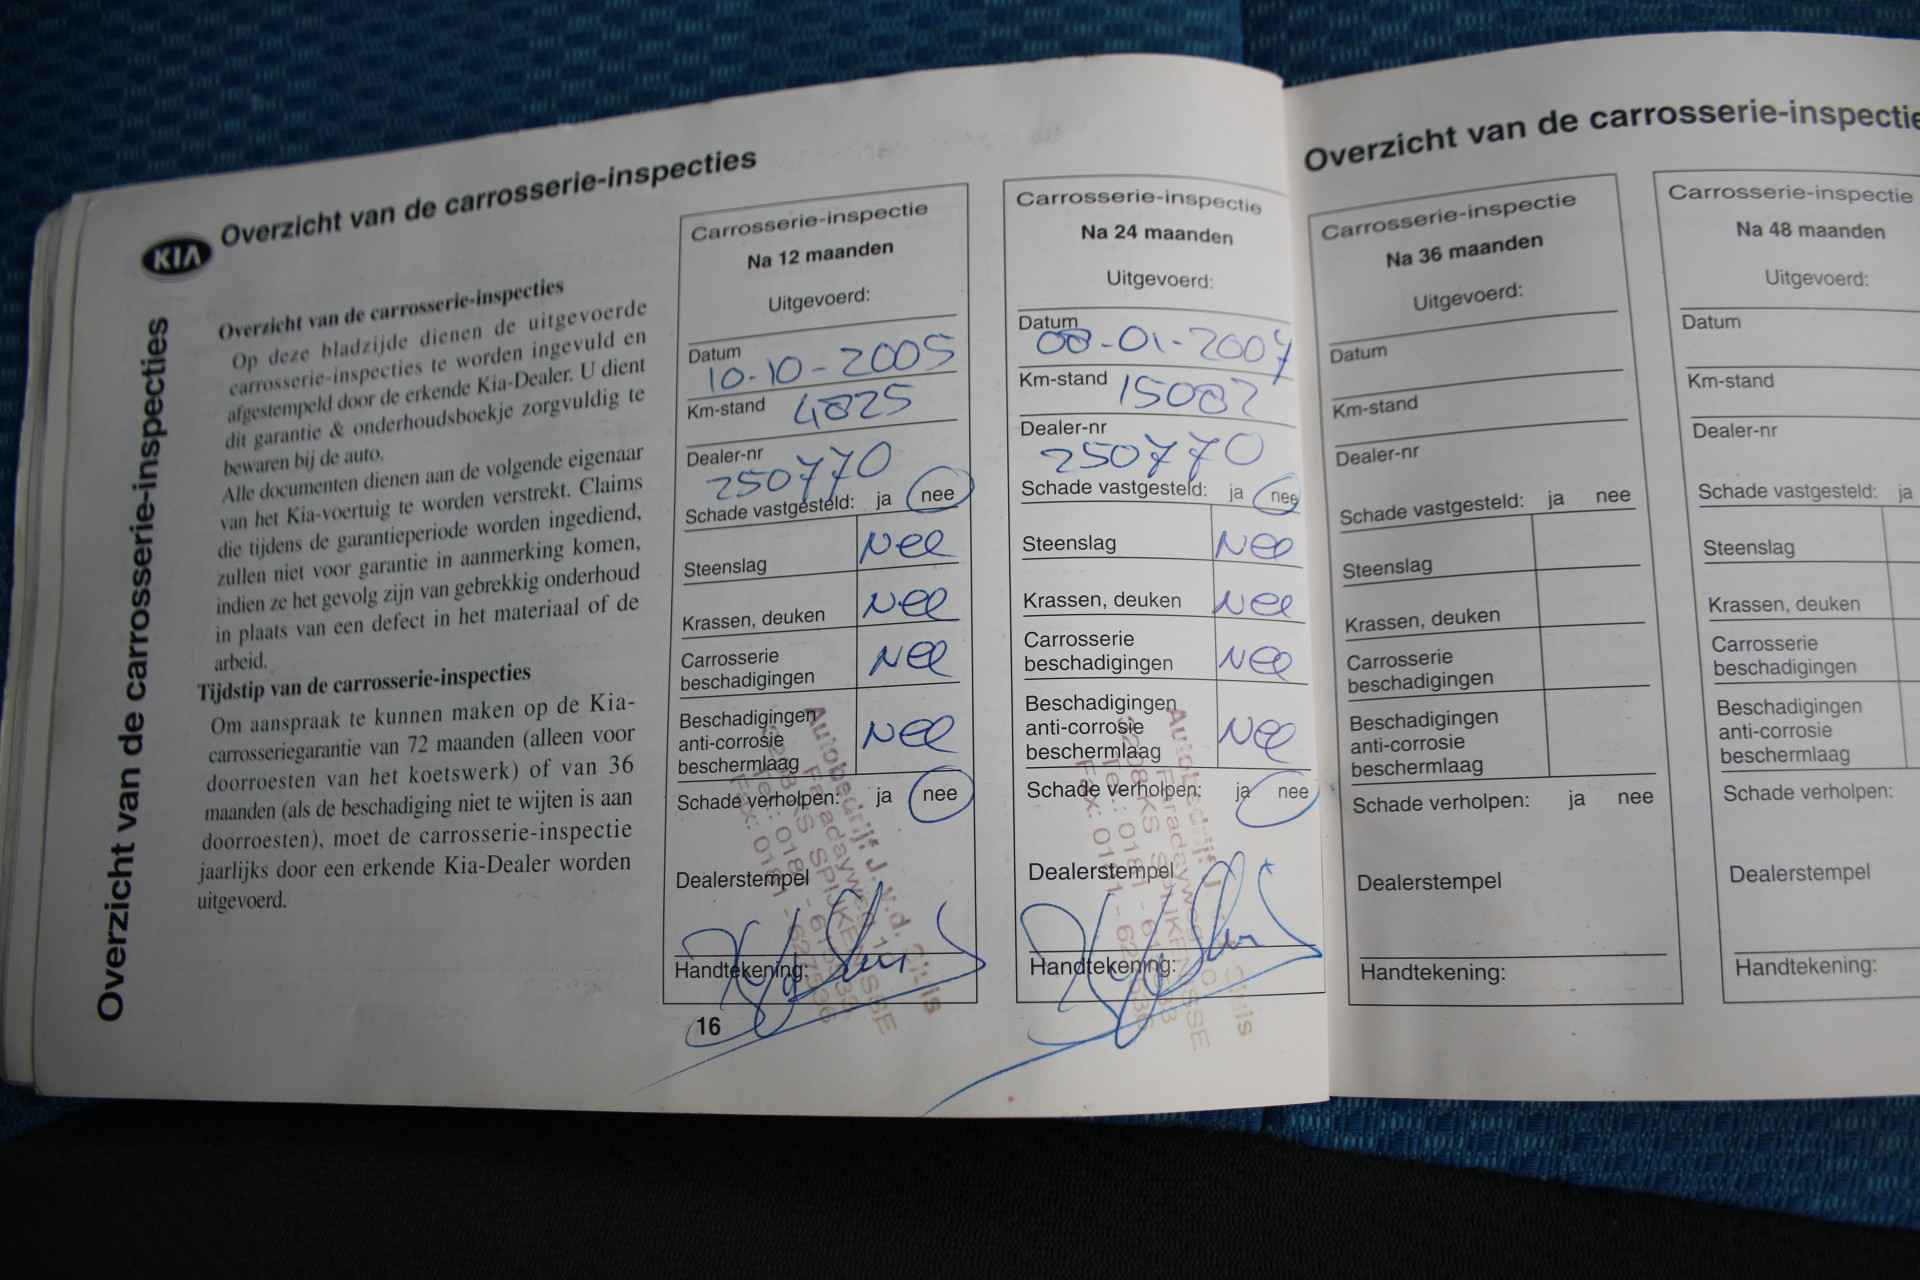 Overzicht van de carrosserie-inspecties
KIA
Overzicht van de carrosserie-inspecties
Overzicht van de carrosserie-inspecties
Op deze bladzijde dienen de uitgevoerde
carrosserie-inspecties te worden ingevuld en
afgestempeld door de erkende Kia-Dealer. U dient
dit garantie & onderhoudsboekje zorgvuldig te
bewaren bij de auto.
Alle documenten dienen aan de volgende eigenaar
van het Kia-voertuig te worden verstrekt. Claims
die tijdens de garantieperiode worden ingediend,
zullen niet voor garantie in aanmerking komen,
indien ze het gevolg zijn van gebrekkig onderhoud
in plaats van een defect in het materiaal of de
arbeid.
Tijdstip van de carrosserie-inspecties
Om aanspraak te kunnen maken op de Kia-
carrosseriegarantie van 72 maanden (alleen voor
doorroesten van het koetswerk) of van 36
maanden (als de beschadiging niet te wijten is aan
doorroesten), moet de carrosserie-inspectie
jaarlijks door een erkende Kia-Dealer worden
uitgevoerd.
Carrosserie-inspectie
Na 12 maanden
Uitgevoerd:
Datum 10-10-2005
Km-stand 4825
Dealer-nr
250770
Schade vastgesteld: ja nee
Steenslag Nee
Krassen, deuken Nee
Carrosserie
beschadigingen Nee
Beschadigingen
anti-corrosie
beschermlaag Nee
Schade verholpen: ja nee
Dealerstempel
Autobedrijf J. v.d.
Faradayweg
SPIJKENISSE
Handtekening:
16
Carrosserie-inspectie
Na 24 maanden
Uitgevoerd:
Datum
08-01-2007
Km-stand 15082
Dealer-nr
250770
Schade vastgesteld: ja nee
Steenslag Nee
Krassen, deuken Nee
Carrosserie
beschadigingen Nee
Beschadigingen
anti-corrosie
beschermlaag Nee
Schade verholpen: ja nee
Dealerstempel
Handtekening:
Overzicht van de carrosserie-inspectie
Carrosserie-inspectie
Na 36 maanden
Uitgevoerd:
Datum
Km-stand
Dealer-nr
Schade vastgesteld: ja nee
Steenslag
Krassen, deuken
Carrosserie
beschadigingen
Beschadigingen
anti-corrosie
beschermlaag
Schade verholpen: ja nee
Dealerstempel
Handtekening:
Carrosserie-inspectie
Na 48 maanden
Uitgevoerd:
Datum
Km-stand
Dealer-nr
Schade vastgesteld: ja
Steenslag
Krassen, deuken
Carrosserie
beschadigingen
Beschadigingen
anti-corrosie
beschermlaag
Schade verholpen:
Dealerstempel
Handtekening: